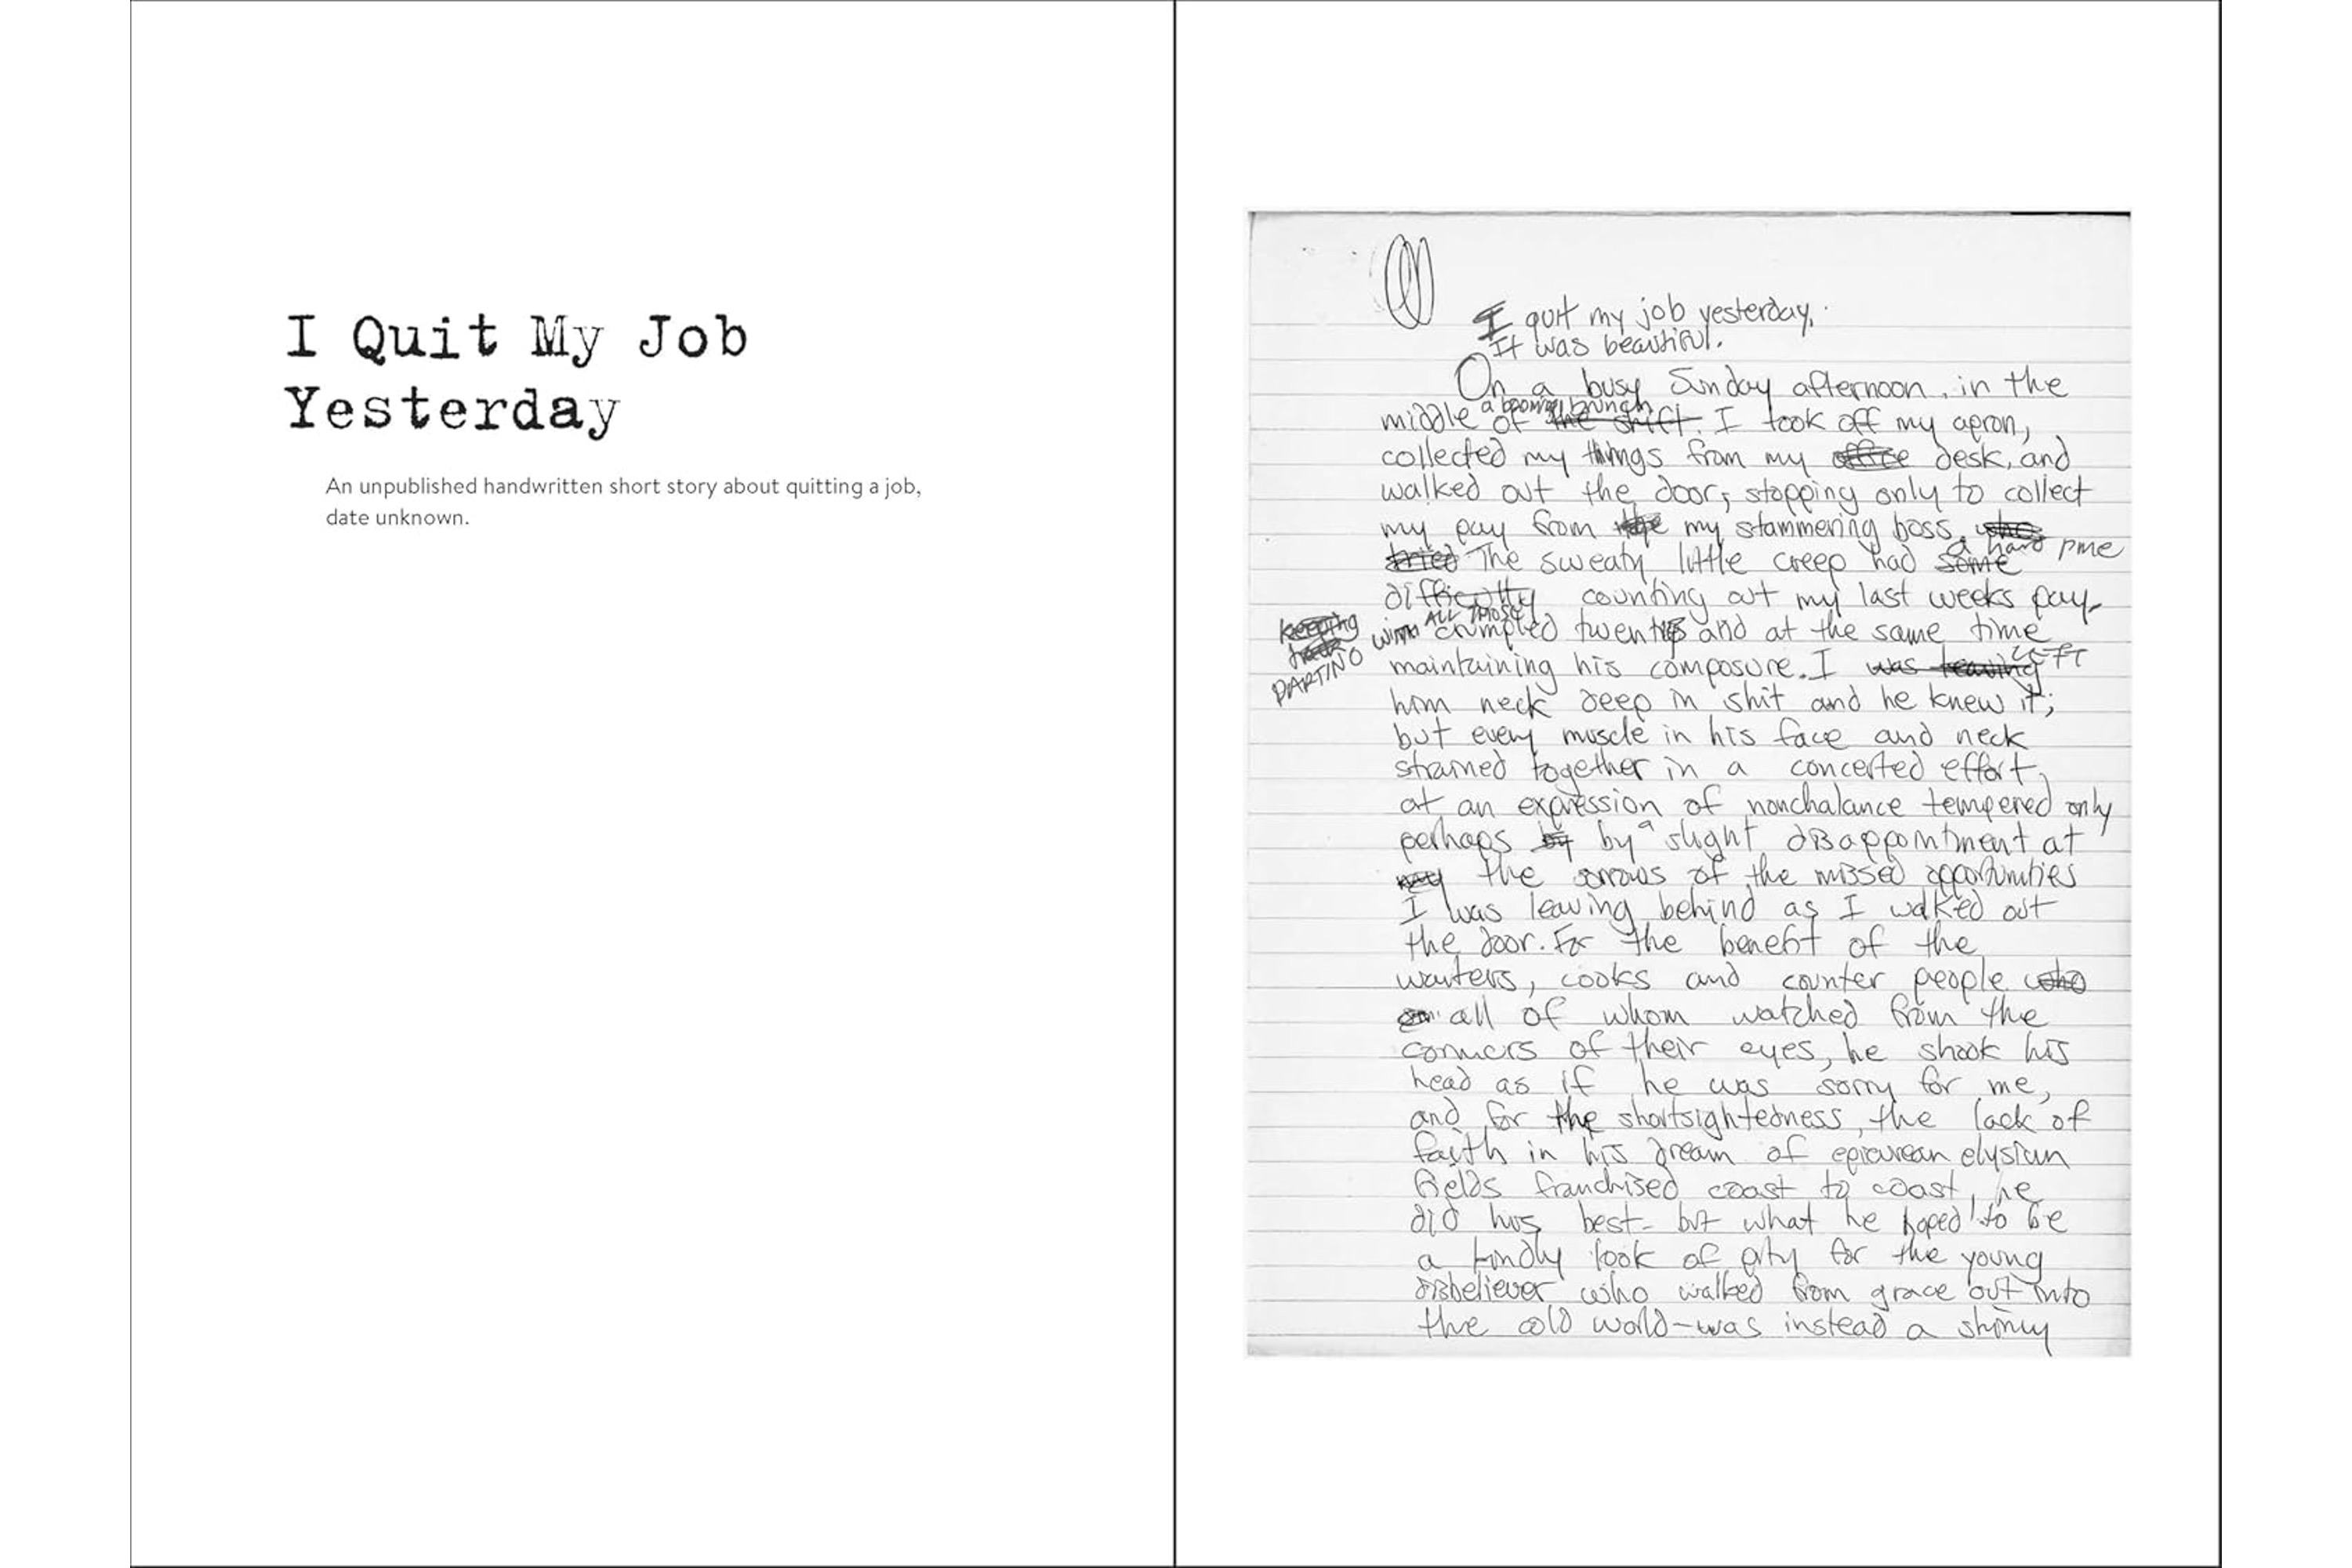 I Quit My Job
Yesterday
An unpublished handwritten short story about quitting a job,
date unknown.
I quit my job yesterday.
It was beautiful.
On a busy Sunday afternoon, in the
a booming brunch
middle of the shift. I took off my apron,
collected my things from my office desk, and
walked out the door, stopping only to collect
my pay from the my stammering boss, who
a hard
tried The sweaty little creep had some
difficulty counting out my last weeks pay,
keeping
track
PARTING
ALL THOSE
with crumpled twenties and at the same time
LEFT
maintaining his composure. I was leaving
him neck deep in shit and he knew it;
but every muscle in his face and neck
strained together in a concerted effort,
at an expression of nonchalance tempered only
perhaps by by a slight disappointment at
my the sorrows of the missed opportunities
I was leaving behind as I walked out
the door. For the benefit of the
waiters, cooks and counter people who
all of whom watched from the
corners of their eyes, he shook his
head as if he was sorry for me,
and for the shortsightedness, the lack of
faith in his dream of epicurean elysian
fields franchised coast to coast, he
did his best - but what he hoped to be
a kindly look of pity for the young
disbeliever who walked from grace out into
the cold world - was instead a shiny